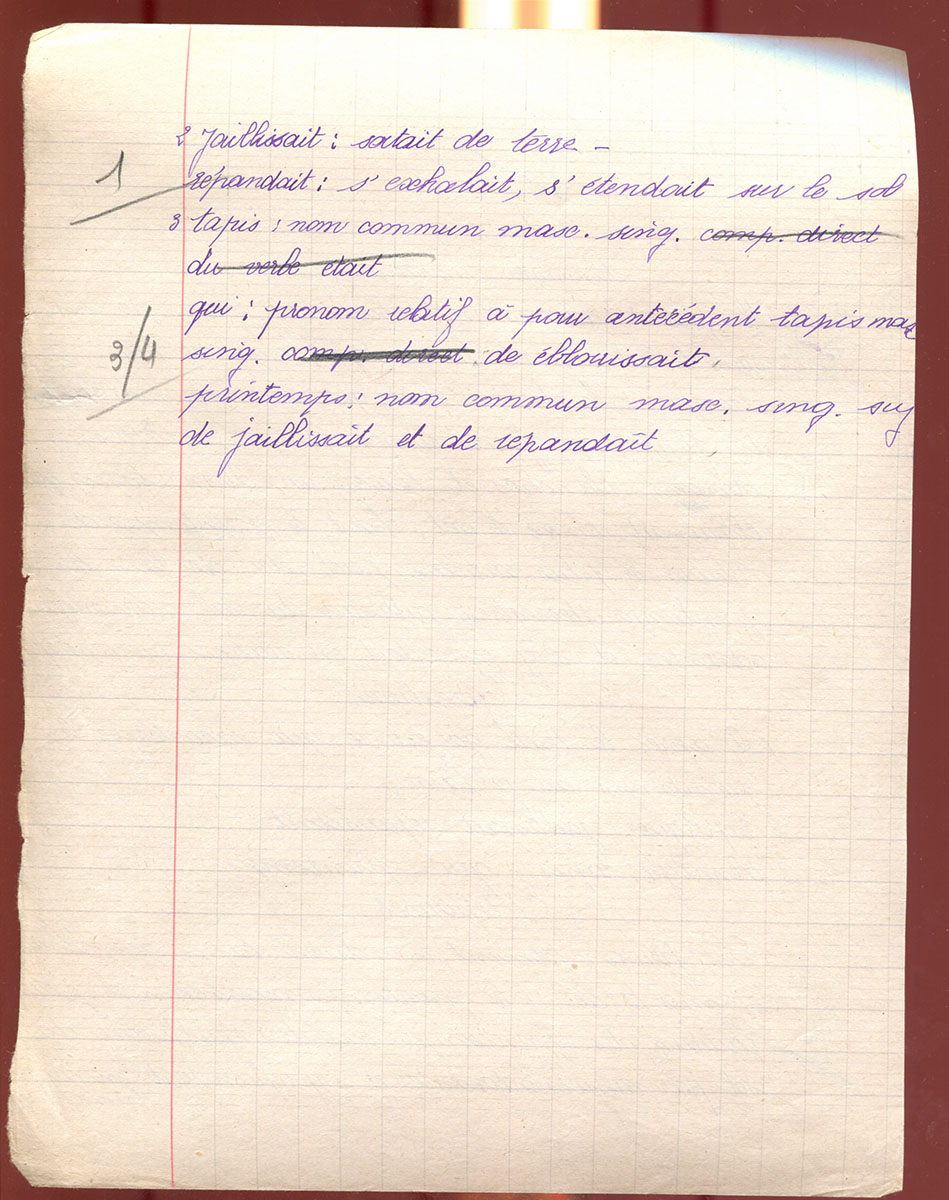 2 Jaillissait : sortait de terre –
1
répandait : s'exhalait, s'étendait sur le sol
3 tapis : nom commun masc. sing. comp. direct
du verbe était
qui : pronom relatif à pour antécédent tapis mas
3/4
sing. comp. direct de éblouissait.
printemps : nom commun masc. sing. suj
de jaillissait et de repandait